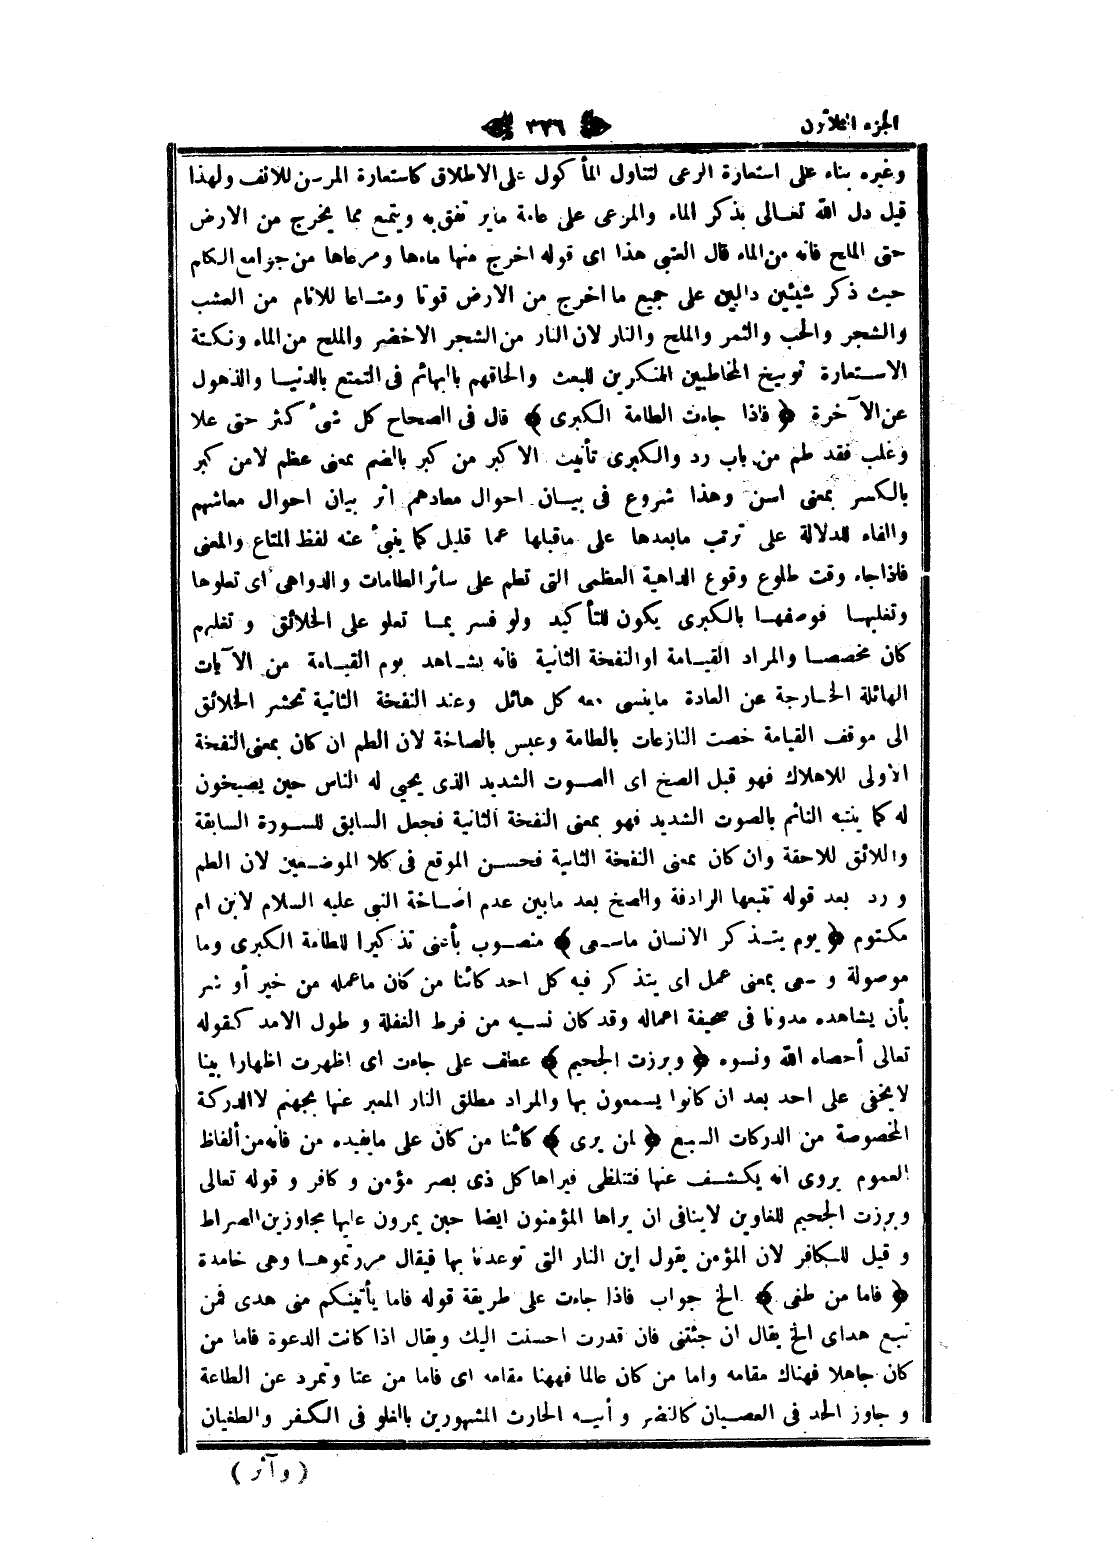 الجزء الثلاثون
٣٢٦
وغيره بناء على استعارة الرعى لتناول المأكول على الاطلاق كاستعارة المرسن للانف ولهذا
قيل دل الله تعالى بذكر الماء والمرعى على عامة مايرتفق به ويتمتع مما يخرج من الارض
حتى الملح فانه من الماء قال العتبى هذا اى قوله اخرج منها ماءها ومرعاها من جوامع الكلم
حيث ذكر شيئين دالين على جميع ما اخرج من الارض قوتا ومتاعا للانام من العشب
والشجر والحب والثمر والملح والنار لان النار من الشجر الاخضر والملح من الماء ونكتة
الاستعارة توبيخ المخاطبين المنكرين للبعث والحاقهم بالبهائم فى التمتع بالدنيا والذهول
عن الآخرة ﴿ فاذا جاءت الطامة الكبرى ﴾ قال فى الصحاح كل شىء كثر حتى علا
وغلب فقد طم من باب رد والكبرى تأنيث الاكبر من كبر بالضم بمعنى عظم لامن كبر
بالكسر بمعنى اسن وهذا شروع فى بيان احوال معادهم اثر بيان احوال معاشهم
والفاء للدلالة على ترتب مابعدها على ماقبلها عما قليل كما ينبئ عنه لفظ المتاع والمعنى
فاذا جاء وقت طلوع وقوع الداهية العظمى التى تطم على سائر الطامات والدواهى اى تعلوها
وتغلبها فوصفها بالكبرى يكون للتأكيد ولو فسر بما تعلو على الخلائق و تغلبهم
كان مخصصا والمراد القيامة او النفخة الثانية فانه يشاهد يوم القيامة من الآيات
الهائلة الخارجة عن العادة ماينسى معه كل هائل وعند النفخة الثانية تحشر الخلائق
الى موقف القيامة خصت النازعات بالطامة وعبس بالصاخة لان الطم ان كان بمعنى النفخة
الاولى للاهلاك فهو قبل الصخ اى الصوت الشديد الذى يحيى له الناس حين يصيخون
له كما ينتبه النائم بالصوت الشديد فهو بمعنى النفخة الثانية فجعل السابق للسورة السابقة
واللائق للاحقة وان كان بمعنى النفخة الثانية فحسن الموقع فى كلا الموضعين لان الطم
و رد بعد قوله تتبعها الرادفة والصخ بعد مابين عدم اصاخة النبى عليه السلام لابن ام
مكتوم ﴿ يوم يتذكر الانسان ماسعى ﴾ منصوب بأعنى تذكيرا للطامة الكبرى وما
موصولة و سعى بمعنى عمل اى يتذكر فيه كل احد كائنا من كان ماعمله من خير أو شر
بأن يشاهده مدونا فى صحيفة اعماله وقد كان نسيه من فرط الغفلة و طول الامد كقوله
تعالى أحصاه الله ونسوه ﴿ وبرزت الجحيم ﴾ عطف على جاءت اى اظهرت اظهارا بينا
لايخفى على احد بعد ان كانوا يسمعون بها والمراد مطلق النار المعبر عنها بجهنم لا الدركة
المخصوصة من الدركات السبع ﴿ لمن يرى ﴾ كائنا من كان على مايفيده من فانه من ألفاظ
العموم يروى انه يكشف عنها فتتلظى فيراها كل ذى بصر مؤمن و كافر و قوله تعالى
وبرزت الجحيم للغاوين لاينافى ان يراها المؤمنون ايضا حين يمرون عليها مجاوزين الصراط
و قيل للكافر لان المؤمن يقول اين النار التى توعدنا بها فيقال مررتموها وهى خامدة
﴿ فاما من طغى ﴾ الخ جواب فاذا جاءت على طريقة قوله فاما يأتينكم منى هدى فمن
تبع هداى الخ يقال ان جئتنى فان قدرت احسنت اليك ويقال اذا كانت الدعوة فاما من
كان جاهلا فهناك مقامه واما من كان عالما فههنا مقامه اى فاما من عتا وتمرد عن الطاعة
و جاوز الحد فى العصيان كالنضر و أبيه الحارث المشهورين بالغلو فى الكفر والطغيان
( وآثر )